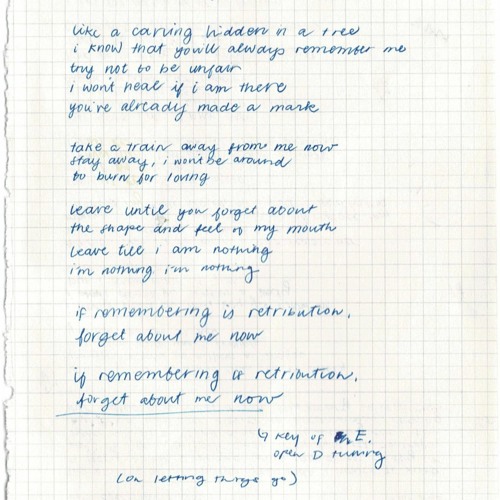 like a carving hidden in a tree
i know that you'll always remember me
try not to be unfair
i won't heal if i am there
you're already made a mark
take a train away from me now
stay away, i won't be around
to burn for loving
leave until you forget about
the shape and feel of my mouth
leave till i am nothing
i'm nothing i'm nothing
if remembering is retribution,
forget about me now
if remembering is retribution,
forget about me now
↳ key of E.
open D tuning
(on letting things go)